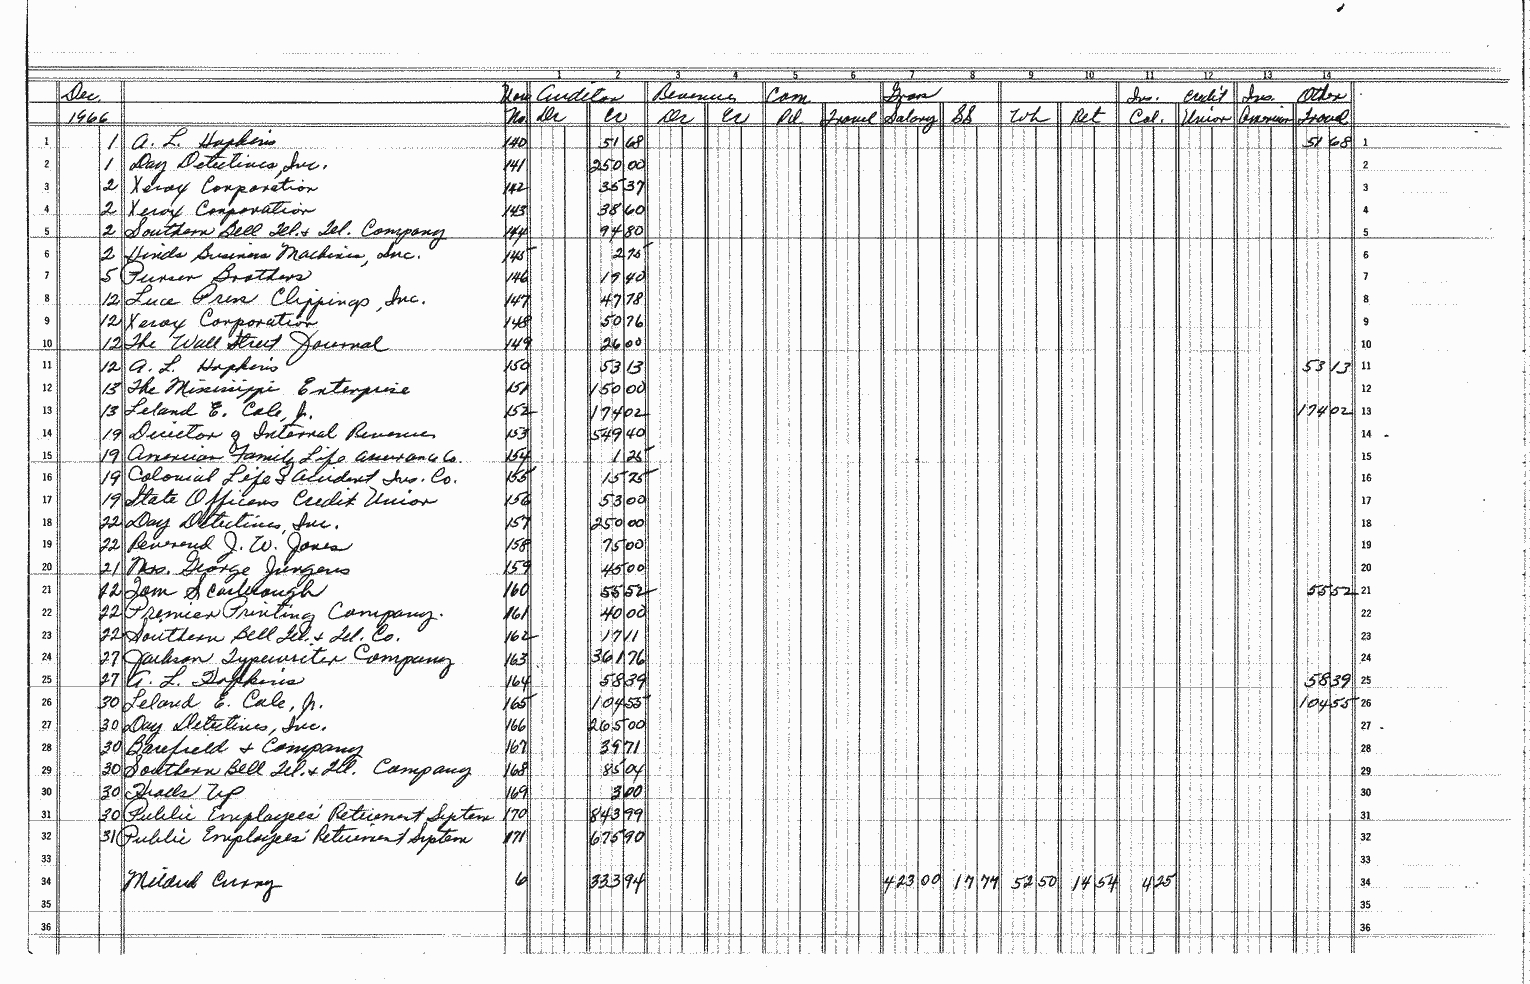 1 2 3 4 5 6 7 8 9 10 11 12 13 14
Dec. Auditor Revenue Com Gross Ins. Credit Ins. Other
1966 No. Dr Cr Dr Cr Pd Travel Salary SS Wh Ret Col. Union American Travel
1 1 A. L. Hopkins 140 51 68 51 68 1
2 1 Day Detectives, Inc. 141 250 00 2
3 2 Xerox Corporation 142 35 37 3
4 2 Xerox Corporation 143 38 60 4
5 2 Southern Bell Tel. & Tel. Company 144 94 80 5
6 2 Hinds Business Machines, Inc. 145 2 75 6
7 5 Purser Brothers 146 19 40 7
8 12 Luce Press Clippings, Inc. 147 47 78 8
9 12 Xerox Corporation 148 50 76 9
10 12 The Wall Street Journal 149 26 00 10
11 12 A. L. Hopkins 150 53 13 53 13 11
12 13 The Mississippi Enterprise 151 150 00 12
13 13 Leland E. Cole, Jr. 152 174 02 174 02 13
14 19 Director of Internal Revenue 153 549 40 14
15 19 American Family Life Assurance Co. 154 1 25 15
16 19 Colonial Life & Accident Ins. Co. 155 15 75 16
17 19 State Officers Credit Union 156 53 00 17
18 22 Day Detectives, Inc. 157 250 00 18
19 22 Reverend J. W. Jones 158 75 00 19
20 21 Mrs. George Jurgens 159 45 00 20
21 22 Tom Scarbrough 160 55 52 55 52 21
22 22 Premier Printing Company. 161 40 00 22
23 22 Southern Bell Tel. & Tel. Co. 162 17 11 23
24 27 Jackson Typewriter Company 163 361 76 24
25 27 A. L. Hopkins 164 58 39 58 39 25
26 30 Leland E. Cole, Jr. 165 104 55 104 55 26
27 30 Day Detectives, Inc. 166 265 00 27
28 30 Barefield & Company 167 39 71 28
29 30 Southern Bell Tel. & Tel. Company 168 85 04 29
30 30 Heads Up 169 3 00 30
31 30 Public Employees' Retirement System 170 843 99 31
32 31 Public Employees' Retirement System 171 675 90 32
33 33
34 Mildred Curry 6 333 94 423 00 17 77 52 50 14 54 4 25 34
35 35
36 36